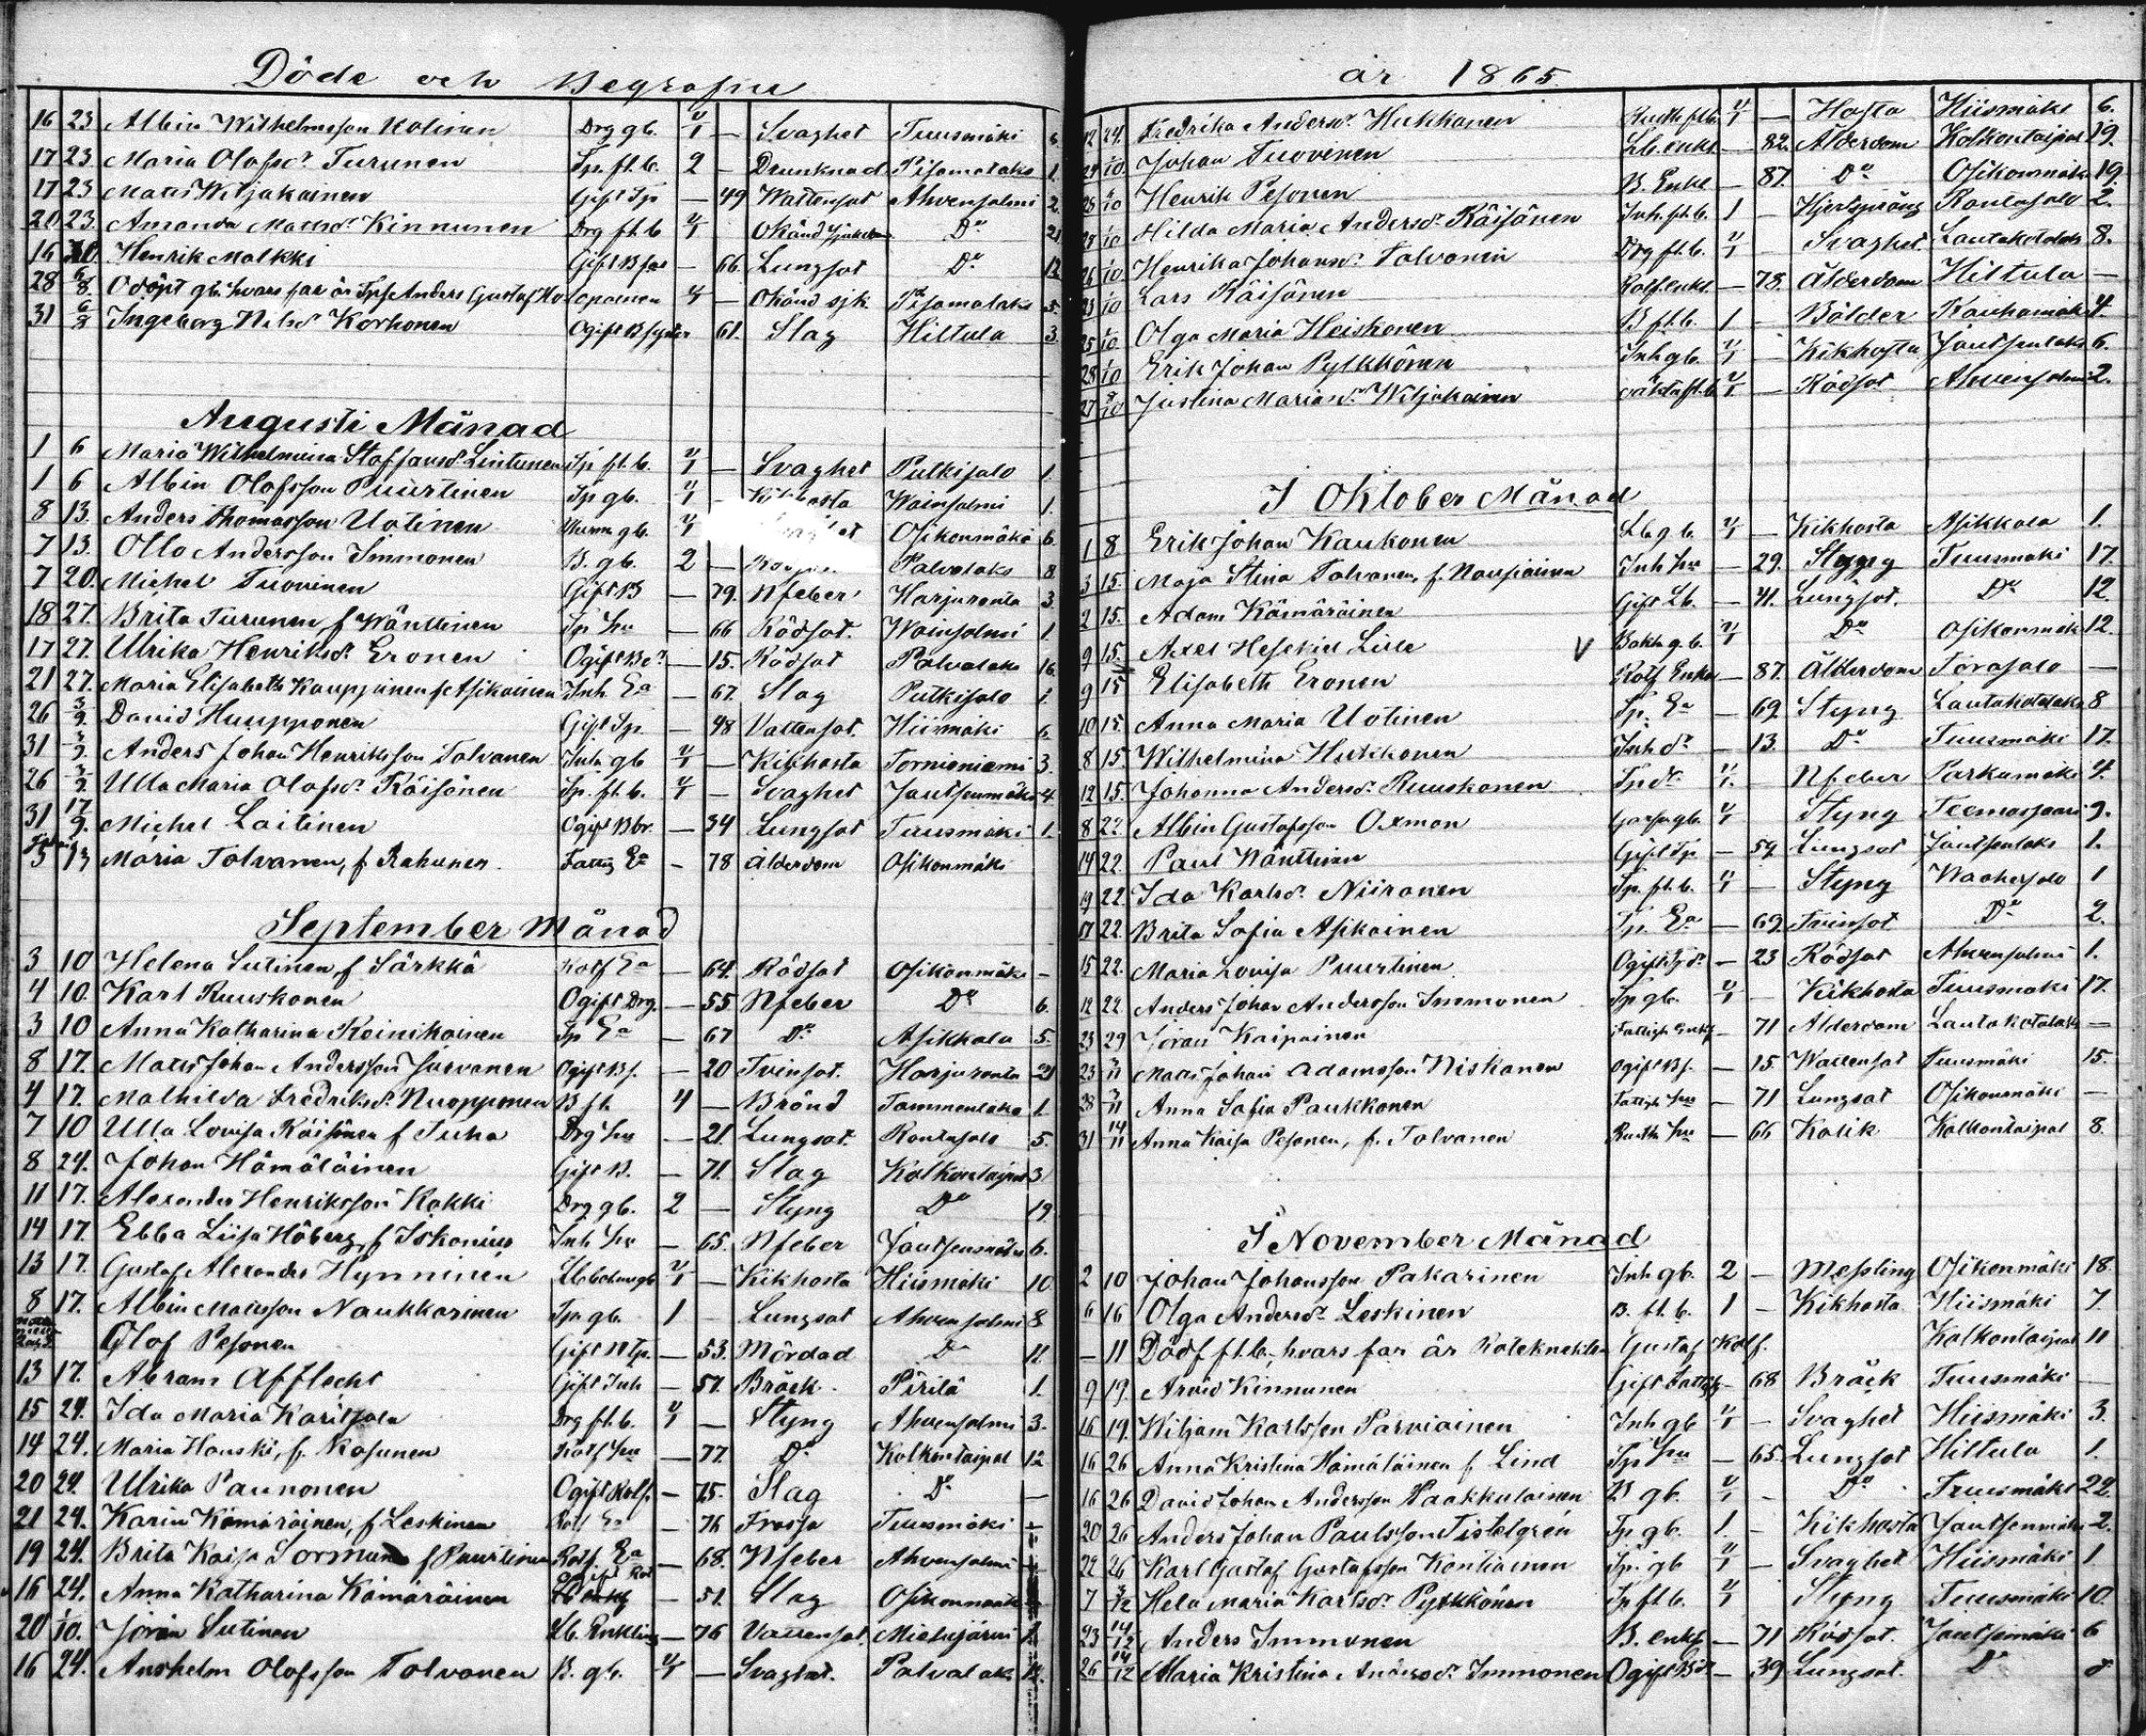 Döde och Begrafne
16 23 Albin Wilhelmsson Kolinen Drg gb. u/1 — Svaghet Tuusmäki 6
17 23. Maria Olofsdr Turunen Tp. fl. b. 2 — Drunknad Pisamalaks 1.
17 23 Matts Wiljakainen Gift Tp — 49 Wattensot Ahvensalmi 2.
20 23. Amanda Mattsdr Kinnunen Drg fl. b u/1 Okänd sjukdom Do 21
16 30. Henrik Malkki Gift B — 66. Lungsot Do 12
28 6/8 Odöpt gb. hvars far är Anders Gustaf u/1 — Okänd sjk. Pisamalaks 5.
31 6/8 Ingeborg Nilsdr Korhonen Ogift B syster 61. Slag Hiltula 3.
Augusti Månad
1 6 Maria Wilhelmina Staffansdr Lintunen Tp fl. b. u/1 — Svaghet Putkisalo 1.
1 6 Albin Olofsson Puurtinen Tp gb. u/1 - Kikhosta Wainsalmi 1.
8 13. Anders Thomasson Uotinen gb. u/1 Osikonmäki 6.
7 13. Otto Andersson Immonen B. gb. 2 — Palvalaks 8
7 20. Michel Tuovinen Gift B — 79. Nfeber Harjuranta 3.
18 27. Brita Turunen f Wänttinen Tp hu — 66 Rödsot. Wainsalmi 1.
17 27. Ulrika Henriksdr Eronen Ogift Bdr — 15. Rödsot Palvalaks 16
21 27. Maria Elisabeth Kauppinen f Asikainen Inh Ea — 67. Slag Putkisalo 1.
26 3/9. David Huupponen Gift Tp. — 48 Vattensot. Hiismäki 6
31 3/9. Anders Johan Henriksson Tolvanen Inh gb u/1 — Kikhosta Tornioniemi 3.
26 3/9. Ulla Maria Olofsdr Räisänen Tp. fl. b. u/1 - Svaghet Jautsenmäki 4
31 17/9. Michel Laitinen Ogift Bbr. — 34 Lungsot Tuusmäki 1.
5 13 Maria Tolvanen, f Rahunen. Fattig Ea - 78 Ålderdom Osikonmäki
September Månad
3 10 Helena Sutinen, f Särkkä Rotf Ea — 64. Rödsot Osikonmäki —
4 10. Karl Ruuskonen Ogift Drg. — 55 Nfeber Do 6.
3 10 Anna Katharina Reinikainen Tp Ea — 67 Do Asikkala 5.
8 17. Matts Johan Andersson Jurvanen Ogift Bs. — 20 Tvinsot. Harjuranta 21
4 17. Mathilda Fredriksdr Nuopponen B fl. 4 — Bränd Tammenlaks 1.
7 10 Ulla Lovisa Räisänen f Tuha Drg hu — 21. Lungsot. Rantasalo 5.
8 24. Johan Hämäläinen Gift B. — 71. Slag Kolkontaipal 3.
11 17. Alexander Henriksson Kokki Drg gb. 2 — Styng Do 19.
14 17. Ebba Liisa Höberg, f Iskanius Inh hu — 65. Nfeber Jautsenmäki 6.
13 17. Gustaf Alexander Hynninen gb u/1 — Kikhosta Hiismäki 10
8 17. Albin Mattsson Naukkarinen Tp. gb. 1 - Lungsot Ahvensalmi 8
Olof Pesonen Gift Tp. — 53. Mördad Do 11.
13 17. Abram Afflecht Gift Inh — 51. Bråck. Pirilä 1.
15 24. Ida Maria Karitsala Drg fl. b. u/1 — Styng Ahvensalmi 3.
14 24. Maria Hauski, f. Kosunen Rotf hu — 77. Do Kolkontaipal 12
20 24. Ulrika Paunonen Ogift Rotf. — 75. Slag Do —
21 24. Karin Kämäräinen, f Leskinen Rotf Ea — 76 Frossa Tuusmäki
19 24. Brita Kaisa Sormunen f Puurtinen Rotf. Ea — 68. Nfeber Ahvensalmi
16 24. Anna Katharina Kämäräinen — 51. Slag Osikonmäki
20 1/10. Jöran Sutinen Lb. Enkling — 76 Vattensot. Miehijärvi 1.
16 24. Anshelm Olofsson Tolvanen B. gb. u/1 — Svaghet. Palvalaks 12.
år 1865.
12 24. Fredrika Andersdr Hukkanen fl b. u/1 — Hosta Hiismäki 6.
24 1/10. Johan Tuovinen Lb. enkl. — 82. Ålderdom Kolkontaipal 19.
28 1/10 Henrik Pesonen B. Enkl — 87. Do Osikonmäki 19.
28 1/10 Hilda Maria Andersdr Räisänen Inh. fl. b. 1 — Hjertsprång Rantasalo 2.
26 1/10. Henrika Johansdr Tolvanen Drg fl. b. u/1 — Svaghet Lautakotalaks 8.
23 1/10 Lars Räisänen Rotf. enkl. — 78. Ålderdom Hiltula —
25 1/10. Olga Maria Heiskonen B fl. b. 1 - Bölder Kauhamäki 4.
28 1/10 Erik Johan Pylkkänen Inh gb. u/1 — Kikhosta Jautsenlaks 6.
27 8/10 Justina Mariasdr Wiljakainen oäkta fl. b u/1 — Rödsot Ahvensalmi 2.
I Oktober Månad
1 8 Erik Johan Kaukonen Lb. g b. u/1 — Kikhosta Asikkala 1.
3 15. Maja Stina Tolvanen, f. Naupiainen Inh hu — 29. Styng Tuusmäki 17.
2 15. Adam Kämäräinen Gift Lb. — 41. Lungsot. Do 12
9 15. Axel Hesekiel Lille V Bokh. g. b. u/1 Do Osikonmäki 12.
9 15 Elisabeth Eronen Rotf Enka — 87. Ålderdom Torasalo —
10 15. Anna Maria Uotinen Tp. Ea — 69. Styng Lautakotalaks 8
8 15. Wilhelmina Hukkonen Inh dr — 13. Do Tuusmäki 17.
12 15. Johanna Andersdr Ruuskonen Tp dr. u/1. — Nfeber Parkumäki 4.
8 22 Albin Gustafsson Oxman gb. u/1 Styng Teemassaari 9.
14 22. Paul Wänttinen Gift Tp — 59. Lungsot Jautsenlaks 1.
19 22. Ida Karlsdr Niiranen Tp. fl. b. u/1 — Styng Waahersalo 1
17 22. Brita Sofia Asikainen Tp. Ea — 69. Tvinsot Do 2.
15 22. Maria Lovisa Puurtinen Ogift Tp dr. — 23 Rödsot Ahvensalmi 1.
12 22. Anders Johan Andersson Immonen Tp gb. u/1 — Kikhosta Tuusmäki 17.
23 29 Jöran Kaipainen Fattigh Enkl — 71 Ålderdom Lautakotalaks —
23 5/11 Matts Johan Adamsson Niskanen Ogift Bs. — 15. Wattensot Tuusmäki 15.
28 5/11 Anna Sofia Paukkonen Fattigh hu — 71 Lungsot Osikonmäki —
31 14/11 Anna Kaisa Pesonen, f. Tolvanen hu — 66 Kolik Kolkontaipal 8.
I November Månad
2 10 Johan Johansson Pakarinen Inh gb. 2 — Messling Osikonmäki 18.
6 16 Olga Andersdr Leskinen B. fl. b. 1 - Kikhosta Hiismäki 7.
— 11 Dödf fl. b., hvars far är Roteknekten Gustaf Kalf. Kolkontaipal 11
9 19. Arvid Kinnunen Gift Fattigh — 68 Bråck Tuusmäki —
16 19. Wiljam Karlsson Parviainen Inh gb u/1 — Svaghet Hiismäki 3.
16 26 Anna Kristina Hämäläinen f. Lind Tp hu — 65. Lungsot Hiltula 1.
16 26 David Johan Andersson Haakkulainen B gb. u/1 - Do Tuusmäki 22.
20 26 Anders Johan Paulsson Tistelgrén Tp gb. 1. — Kikhosta Jautsenmäki 2.
22 26 Karl Gustaf Gustafsson Kontiainen Tp. gb u/1 — Svaghet Hiismäki 1
7 3/12 Hela Maria Karlsdr Pylkkönen Tp fl b. u/1 Styng Tuusmäki 10.
23 14/12 Anders Immonen B. enkl — 71 Rödsot. Jautsenmäki 6
26 14/12 Maria Kristina Andersdr Immonen Ogift Bdr — 39 Lungsot. Do 8